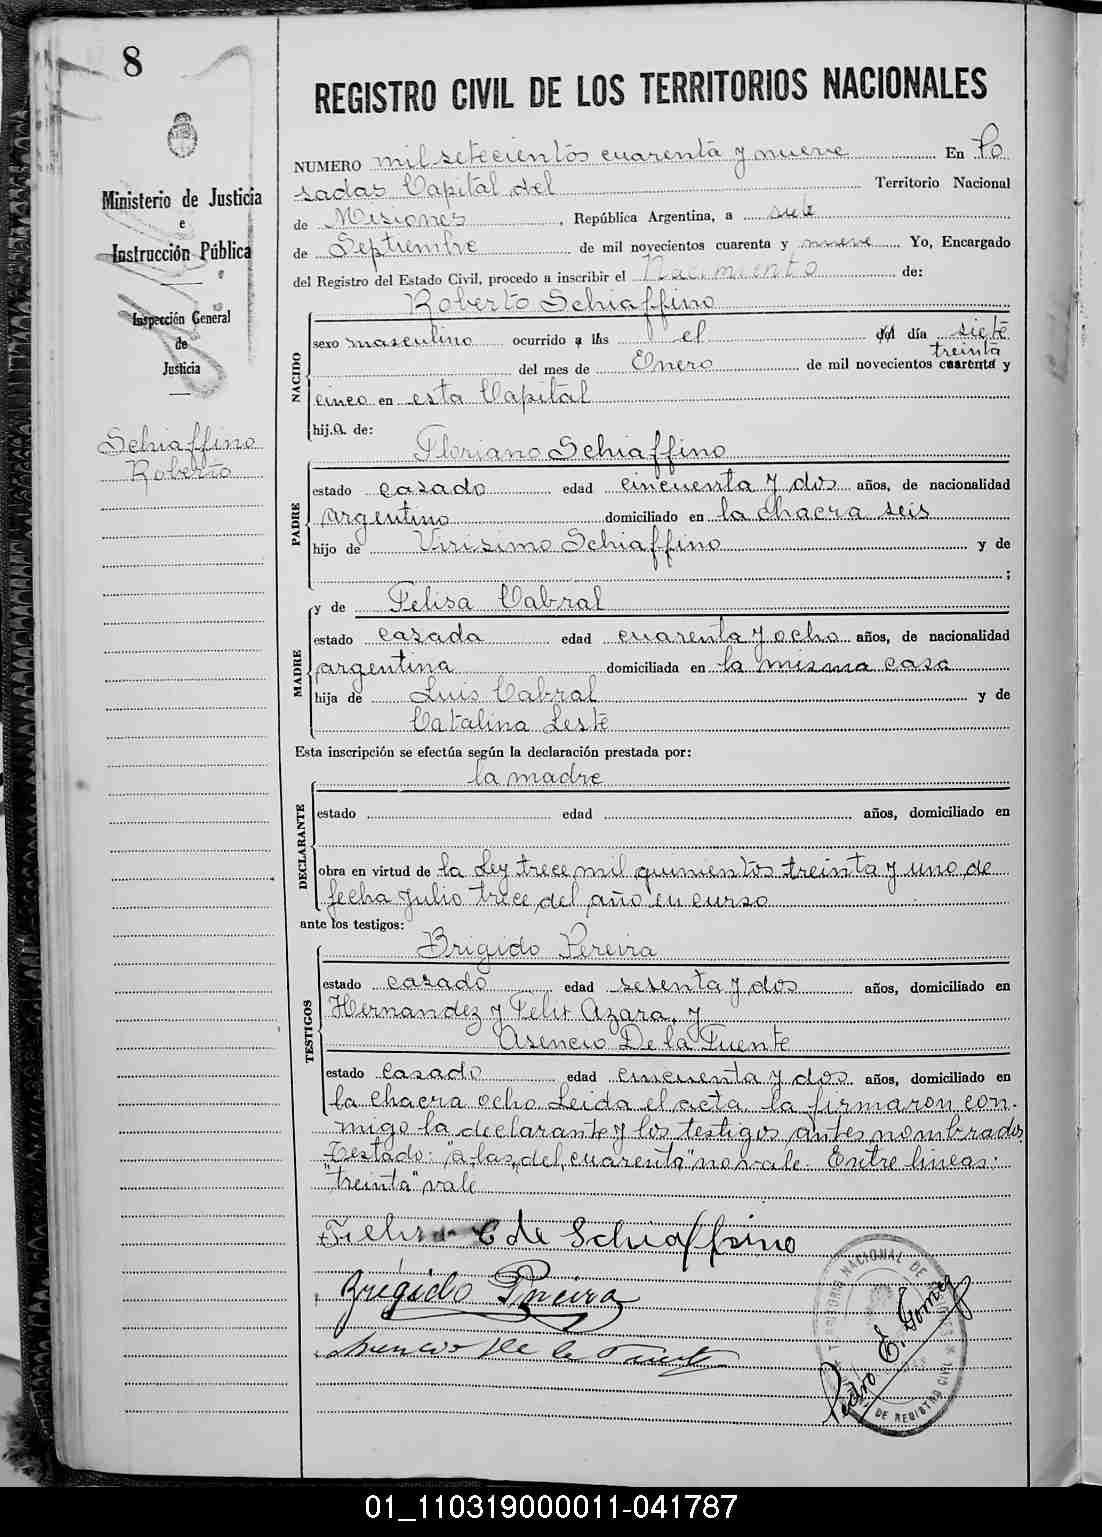 8
Ministerio de Justicia
e
Instrucción Pública
Inspección General
de
Justicia
Schiaffino
Roberto
REGISTRO CIVIL DE LOS TERRITORIOS NACIONALES
NUMERO mil setecientos cuarenta y nueve En Po
sadas Capital del Territorio Nacional
de Misiones, República Argentina, a siete
de Septiembre de mil novecientos cuarenta y nueve Yo, Encargado
del Registro del Estado Civil, procedo a inscribir el Nacimiento de:
Roberto Schiaffino
NACIDO
sexo masculino ocurrido a las el del día siete
treinta
del mes de Enero de mil novecientos cuarenta y
cinco en esta Capital
hij.o. de:
Floriano Schiaffino
PADRE
estado casado edad cincuenta y dos años, de nacionalidad
argentino domiciliado en la chacra seis
hijo de Virisimo Schiaffino y de
;
y de Felisa Cabral
MADRE
estado casada edad cuarenta y ocho años, de nacionalidad
argentina domiciliada en la misma casa
hija de Luis Cabral y de
Catalina Leste
Esta inscripción se efectúa según la declaración prestada por:
la madre
DECLARANTE
estado edad años, domiciliado en
obra en virtud de la Ley trece mil quinientos treinta y uno de
fecha Julio trece del año en curso
ante los testigos:
Brigido Pereira
TESTIGOS
estado casado edad sesenta y dos años, domiciliado en
Hernandez y Felix Azara, y
Asencio De la Fuente
estado casado edad cincuenta y dos años, domiciliado en
la chacra ocho Leida el acta la firmaron con-
migo la declarante y los testigos antes nombrados
Testado: "a, las, del, cuarenta" no vale. Entre lineas:
"treinta" vale
C de Schiaffino
Brígido Pereira
Asencio De la Fuente
Pedro E. Gomez
TERRITORIO NACIONAL DE
DE REGISTRO CIVIL
01_110319000011-041787